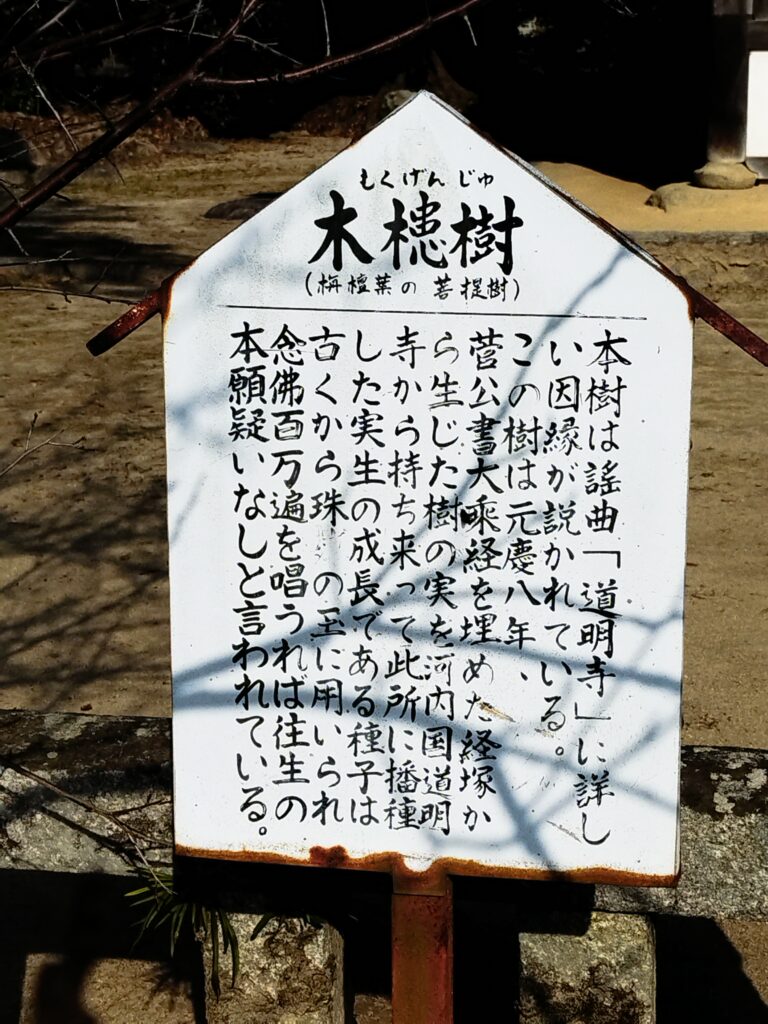 もくげんじゅ
木槵樹
(栴檀葉の菩提樹)
本樹は謡曲「道明寺」に詳し
い因縁が説かれている。
この樹は元慶八年、
菅公書大乘経を埋めた経塚か
ら生じた樹の実を河内国道明
寺から持ち来って此所に播種
した実生の成長である種子は
古くから珠 の玉に用いられ
念佛百万遍を唱うれば往生の
本願疑いなしと言われている。